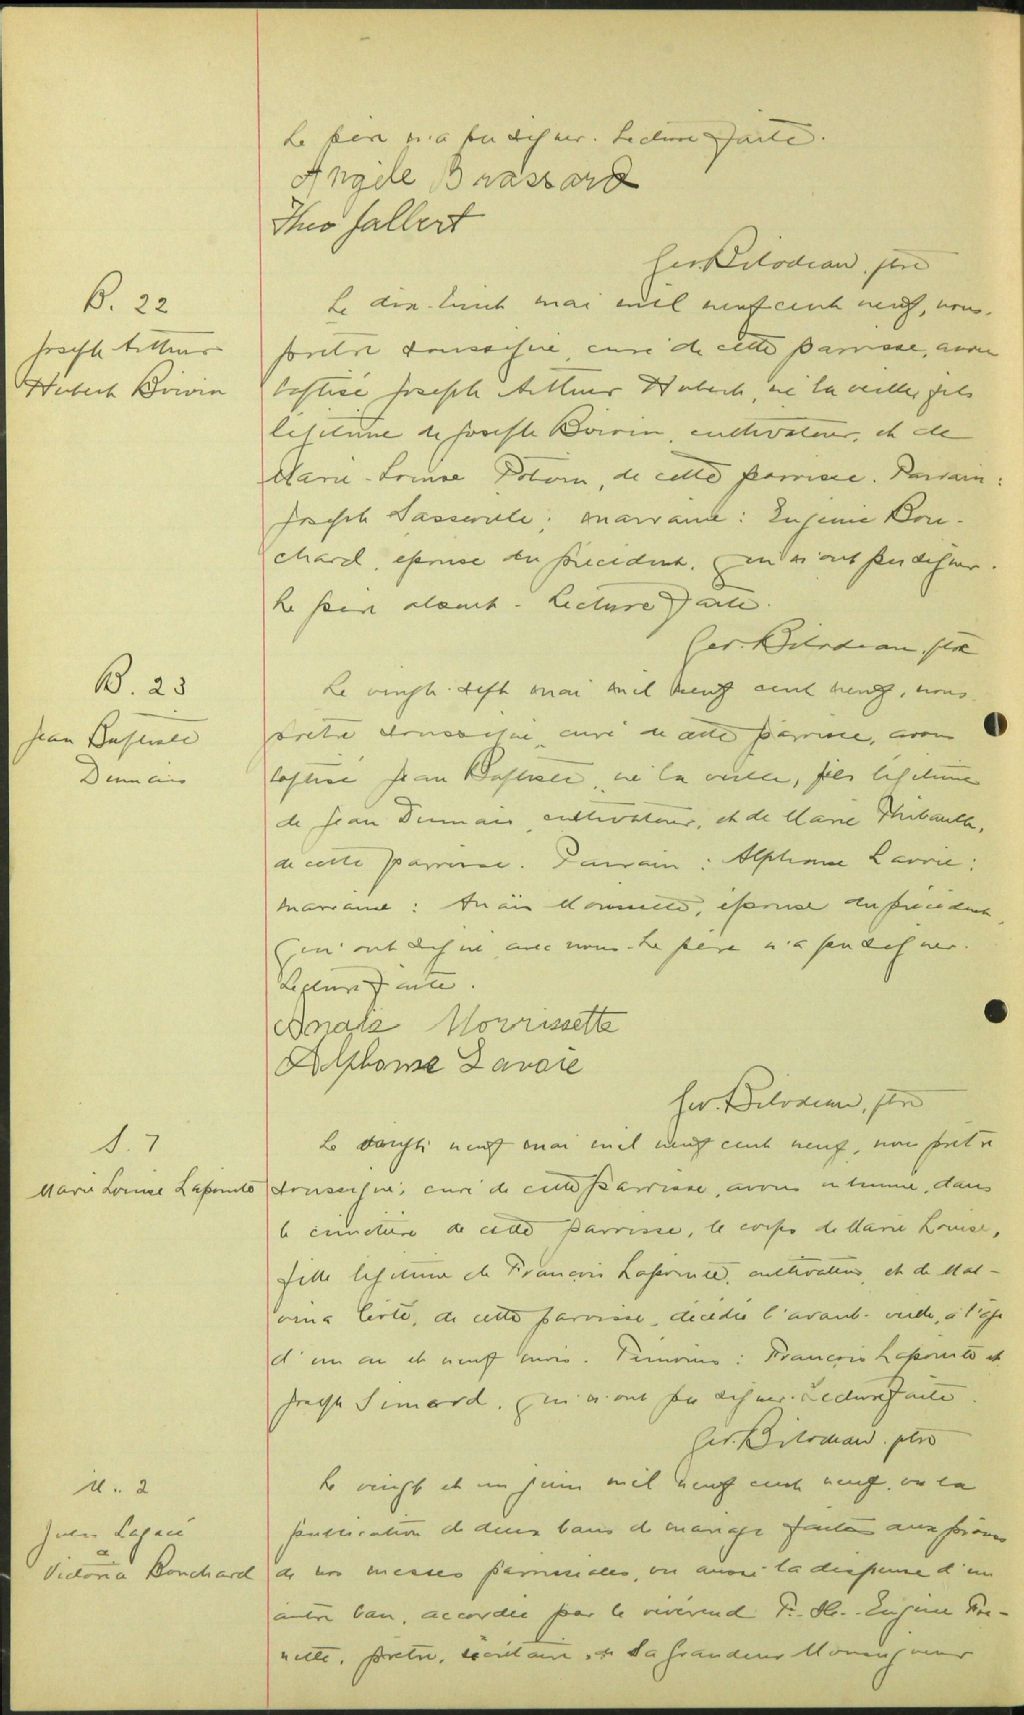 Le père n'a pu signer. Lecture faite.
Angèle Brassard
Theo Jalbert
Geo. Bilodeau, ptre
B. 22
Joseph Arthur
Hubert Boivin
Le dix-huit mai mil neuf cent neuf, nous,
prêtre soussigné, curé de cette paroisse, avons
baptisé Joseph Arthur Hubert, né la veille, fils
légitime de Joseph Boivin, cultivateur, et de
Marie-Louise Potvin, de cette paroisse. Parrain:
Joseph Lasseville; marraine: Eugénie Bou-
chard, épouse du précédent, qui n'ont pu signer.
Le père absent. Lecture faite.
Geo. Bilodeau, ptre
B. 23
Jean Baptiste
Dumais
Le vingt-sept mai mil neuf cent neuf, nous
prêtre soussigné, curé de cette paroisse, avons
baptisé Jean Baptiste, né la veille, fils légitime
de Jean Dumais, cultivateur, et de Marie Thibault,
de cette paroisse. Parrain: Alphonse Lavoie;
marraine: Anaïs Morissette, épouse du précédent,
qui ont signé avec nous. Le père n'a pu signer.
Lecture faite.
Anaïs Morrissette
Alphonse Lavoie
Geo. Bilodeau, ptre
S. 7
Marie Louise Lapointe
Le vingt neuf mai mil neuf cent neuf, nous prêtre
soussigné, curé de cette paroisse, avons inhumé, dans
le cimetière de cette paroisse, le corps de Marie Louise,
fille légitime de François Lapointe, cultivateur, et de Mal-
vina Côté, de cette paroisse, décédée l'avant-veille, à l'âge
d'un an et neuf mois. Témoins: François Lapointe et
Joseph Simard, qui n'ont pu signer. Lecture faite.
Geo. Bilodeau, ptre
M. 2
Jules Lagacé
&
Victoria Bouchard
Le vingt et un juin mil neuf cent neuf, vu la
publication de deux bans de mariage faite aux prônes
de nos messes paroissiales, vu aussi la dispense d'un
autre ban, accordée par le révérend F.-X.-Eugène Fre-
nette, prêtre, secrétaire de Sa Grandeur Monseigneur